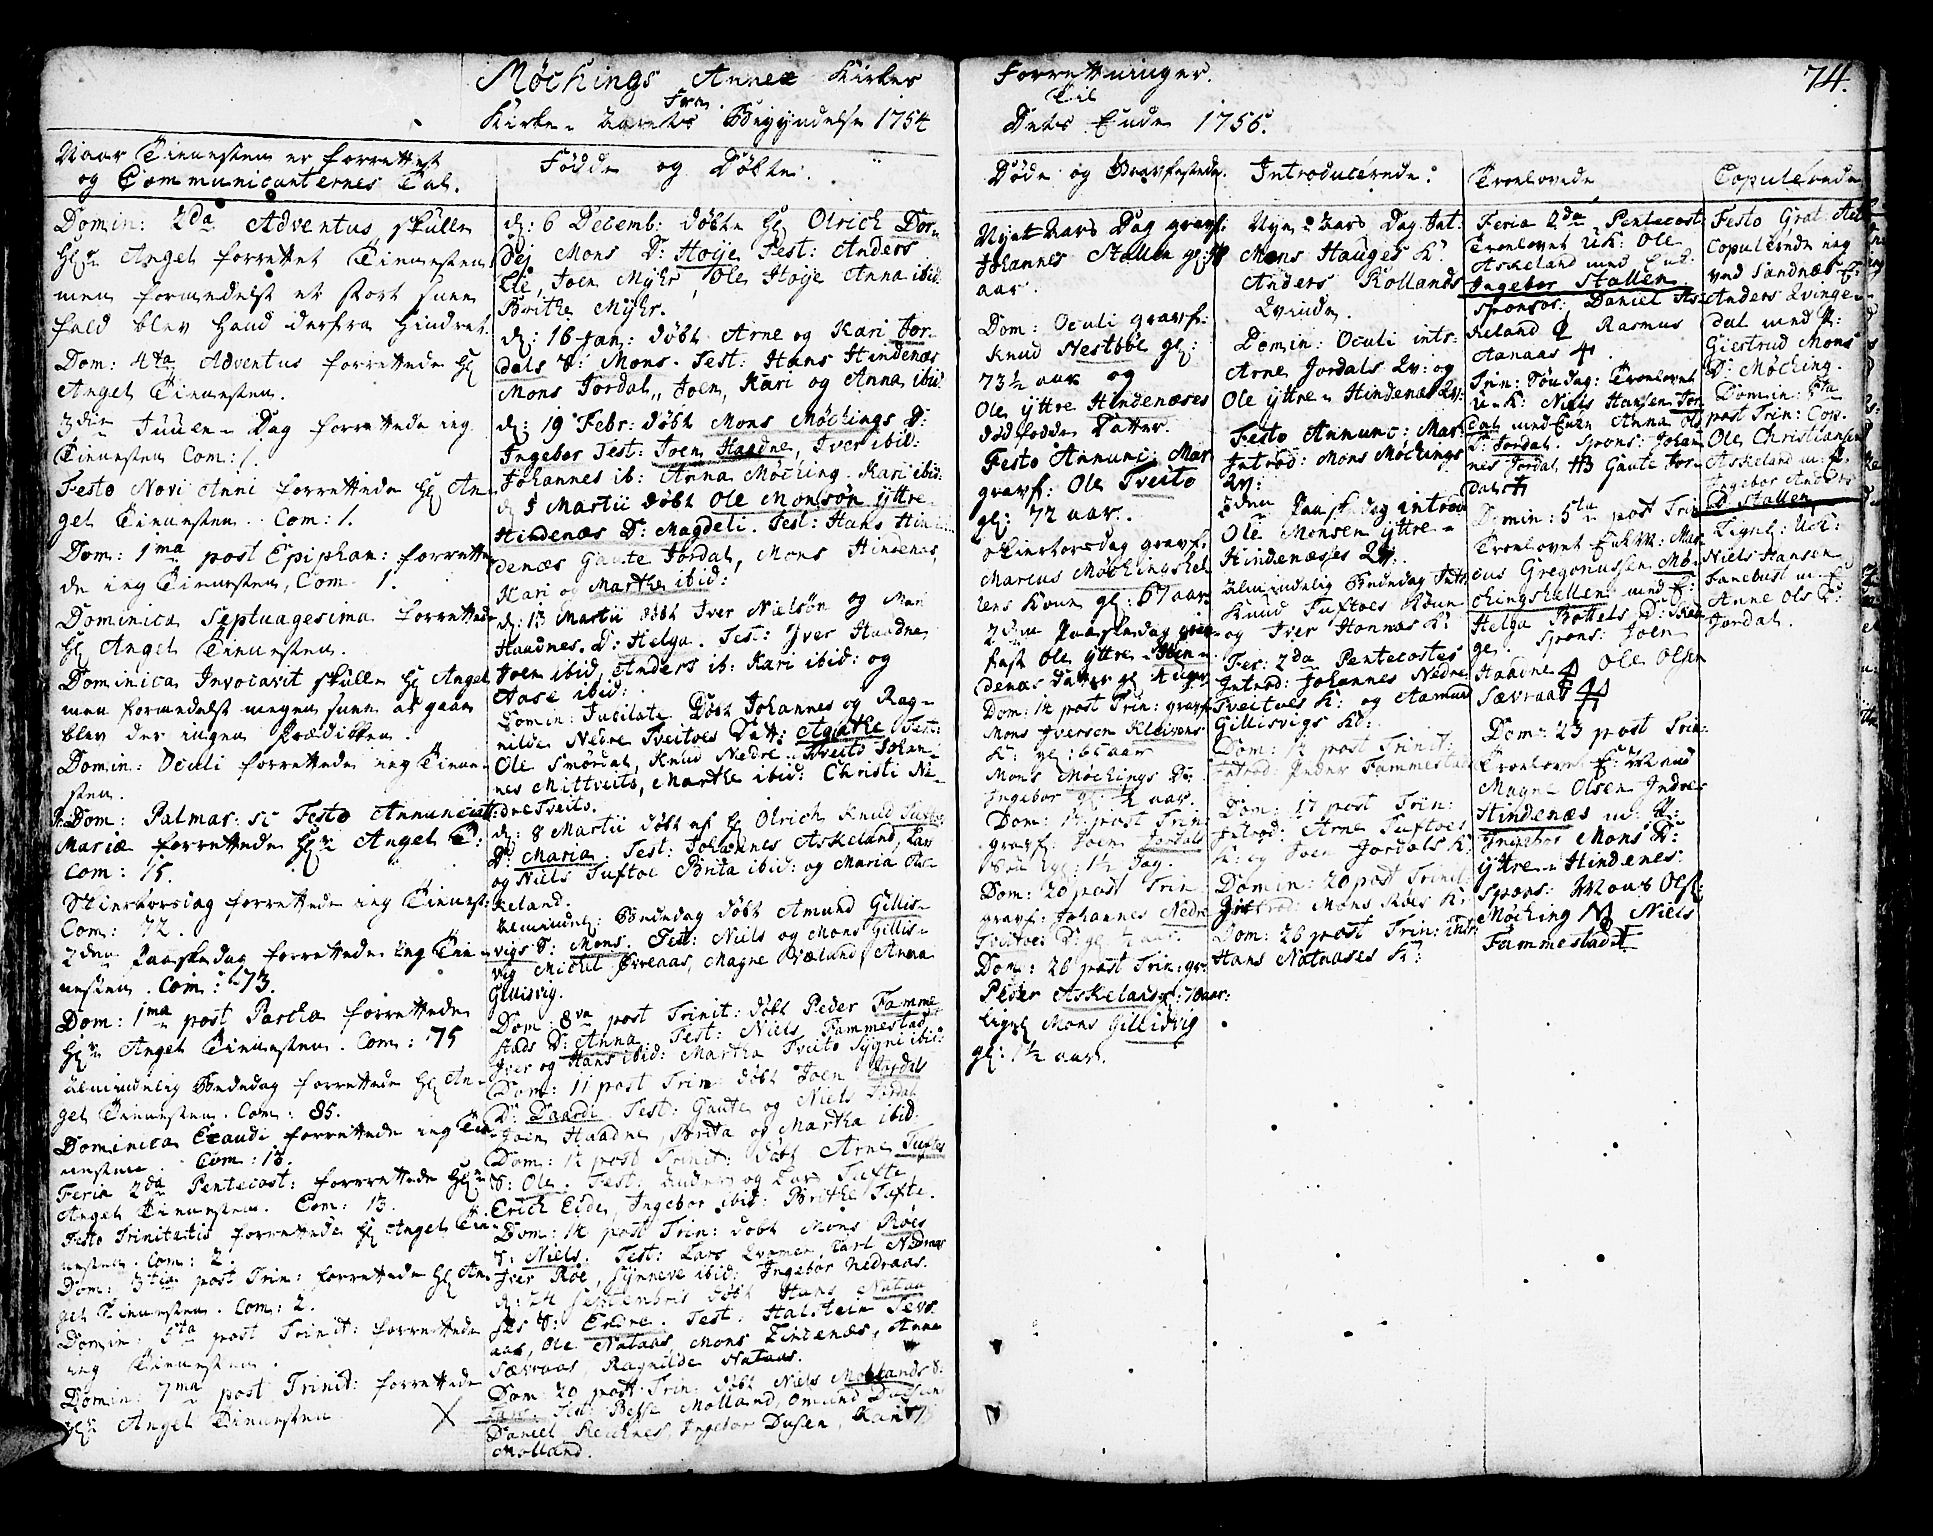 Møchings Annex Kirkes Forrettninger.
74.
Fra Til
Kirke-Aarets Begyndelse 1754 Dets Ende 1755.
Naar Tienesten er forrettet
og Communicanternes Tal.
Domin: 2da Adventus skulle
Hr Angel forrettet Tienesten
men formedelst et stort Snee
fald blev hand derfra hindret.
Dom: 4ta Adventus forrettede Hr
Angel Tienesten.
3die Juule-Dag forrettede ieg
Tienesten Com: 1.
Festo Novi Anni forrettede Hr An-
gel Tienesten. Com: 1.
Dom: 1ma post Epiphan: forrette-
de ieg Tienesten, Com. 1.
Dominica Septuagesima forrettede
Hr Angel Tienesten.
Dominica Invocavit skulle Hr Angel
men formedelst megen Snee at gaae
blev der ingen Prædiken.
Domin: Oculi forrettede ieg Tiene-
sten.
Dom: Palmar: sc Festo Annunciat:
Mariæ forrettede Hr Angel T:
Com: 15.
Skiertorsdag forrettede ieg Tienest:
Com: 72.
2den Paaskedag forrettede ieg Tie-
nesten. Com: 73.
Dom: 1ma post Pascha forrettede
Hr Angel Tienesten. Com: 75
Almindelig Bededag forrettede Hr An-
gel Tienesten. Com: 85.
Dominica Exaudi forrettede ieg Tie-
nesten. Com: 13.
Feria 2da Pentecost: forrettede Hr
Angel Tienesten. Com: 13.
Festo Trinitatis forrettede Hr Angel Tie-
nesten. Com: 2.
Dom: 3tia post Trin: forrettede Hr An-
gel Tienesten. Com: 2.
Domin: 5ta post Trinit: forrettede
ieg Tienesten.
Domin: 7ma post Trinit: forrettede
Hr Angel Tienesten
Fødde og Døbte.
d: 6 Decemb: døbt Hr Olrich
Mons D: Hoye Test: Anders
Joen Myhr, Ole Hoye Anna ibid:
Brithe Myhr.
d: 16 Jan: døbt Arne og Kari Jor-
dals S: Mons. Test: Hans Hindenæs
Mons Jordal, Joen, Kari og Anna ibid
d: 19 Febr: døbt Mons Møchings D:
Ingebor Test: Joen Haadne, Iver ibid:
Johannes ib: Anna Møching Kari ibid:
d 5 Martii døbt Ole Monsøn yttre
Hindenæs D: Magdeli. Test: Hans Hin
denæs Gaute Jordal, Mons Hindenæs,
Kari og Marthe ibid:
d: 13 Martii døbt Iver Nielsøn og Mari
Haadnes. D: Helga. Test: Iver Haadne
Joen ibid, Anders ib: Kari ibid: og
Aase ibid:
Domin: Jubilate Døbt Johannes og Rag-
nilde Nedre Tveitoes Datt: Agathe Test:
Ole Smørdal, Knud Nedre-Tveito Johan-
nes Mittveito, Marthe ibid: Christi Ne-
dre Tveito.
d: 8 Martii døbt af Hr Olrich Knud Tuftes
D: Maria. Test: Johannes Askeland, Lars
og Niels Tuftoe Brita ibid: og Maria As-
keland.
Almindel: Bededag døbt Amund Gillis-
vigs S: Mons. Test: Niels og Mons Gillis-
vig Michel Øvreaas, Magne Bælund, Anna
Gillisvig.
Dom: 8va post Trinit: døbt Peder Famme
stads D: Anna Test: Niels Fammestad
Iver og Hans ibid: Martha Tveito Sygni ibid:
Dom: 11 post Trin: døbt Joen Jordals
D: Test: Gaute og Niels Jordal
Joen Haadne, Brita og Martha ibid.
Dom: 12 post Trinit: døbt Arne Tuftes
S: Ole. Test: Anders og Lars Tufte
Erich Eide, Ingebor ibid: Brithe Tufte.
Dom: 14 post Trin: døbt Mons Røes
S: Niels. Test: Lars Nedraas
Iver Røe, Synneve ibid: Ingebor Nedraas.
d: 24 Septembris døbt Hans Nataa
ses S: Endre. Test: Halstein
aas, Ole Nataas, Mons Hindenæs, Anna
Sævraas, Ragnilde Nataas.
Dom: 20 post Trin: døbt Niels Mollands S:
Test: Besse Molland, Omund Dusen
Daniel Ingebor Dusen, Kari
Molland.
Døde og Gravfæstede.
Nyet Aars Dag gravf:
Johannes Stallen gl:
aar.
Dom: Oculi gravf:
Knud Nestbøe gl:
73½ aar og
Ole yttre Hindenæses
dødfødde Datter.
Festo Annunc: Mar
gravf: Ole Tveito
gl: 72 aar.
Skiertorsdag gravf:
Marcus Møchingshel
lens Kone gl: 67 aar.
2den Paaskedag grav
fæst Ole yttre-Hin-
denæs datter gl
Dom: 12 post Trin: gravf
Mons Iversen Kleivens
K: gl: 65 aar
Mons Møchings D:
Ingebor gl: ½ aar.
Dom: post Trin:
gravf: Joen Jordals
gl: 1½ Dag.
Dom: 20 post Trin
gravf: Johannes Nedre
Tveitoe: D: gl ½ aar.
Dom: 26 post Trin: gr:
Peder Askeland gl: 70 aar:
Ligel Mons Gillisvig
gl: 1½ aar.
Introducerede:
Nye-Aars Dag Int.
Mons Hauges K:
Anders Rollands
Qvinde.
Domin: Oculi intr:
Arne Jordals Qv: og
Ole yttre-Hindenæs Qv:
Festo Annunc: Mar:
Introd: Mons Møchings
Qv:
2den Paaskedag introd
Ole Monsen yttre-
Hindenæses Qv:
Almindelig Bededag Intr:
Knud Tuftoes Kone
og Iver Haanes K:
Fer: 2da Pentecostes
Introd: Johannes Nedre
Tveitoes K: og Aamund
Gillisvigs K:
Dom: 12 post Trinit:
Introd: Peder Fammestad
Dom: 17 post Trin:
Introd: Arne Tuftoes
K: og Joen Jordals K:
Domin: 20 post Trinit:
Introd: Mons Røes K:
Dom: 26 post Trin: intr:
Hans Nataases K:
Troelovede
Feria 2da Pentecost:
Troelovet U: K: Ole
Askeland med
Ingebor Stallen
Sponsor: Daniel As-
keland Rasmus
Aanaas
Trin: Søndag: Troelovet
U: K: Niels Hansen
med Anna Ols
D: Jordal. Spons: Johan
nes Jordal Gaute Jor-
dal
Domin: 5ta post Trin
Troelovet Mar
cus Gregoriussen Mø-
chingshellen med
Helga Bottels D:
Spons: Joen
Haadne Ole Olsen
Sævraas
Dom: 23 post Trin:
Troelovet
Magne Olsen Indre
Hindenæs m: P:
Ingebor Mons D:
yttre-Hindenes:
Spons: Mons Ols:
Møching Niels
Fammestad
Copulerede
Festo Grat: Act
Copulerede ieg
ved Sandnæs
Anders Qvinge-
dal med P:
Giertrud Mons
D: Møching.
Domin: 5ta
post Trin: Cop.
Ole Christiansen
Askeland m: P:
Ingebor Anders
D Stallen
Ligel: U: K:
Niels Hansen
Fanebust m: P:
Anne Ols D:
Jordal.